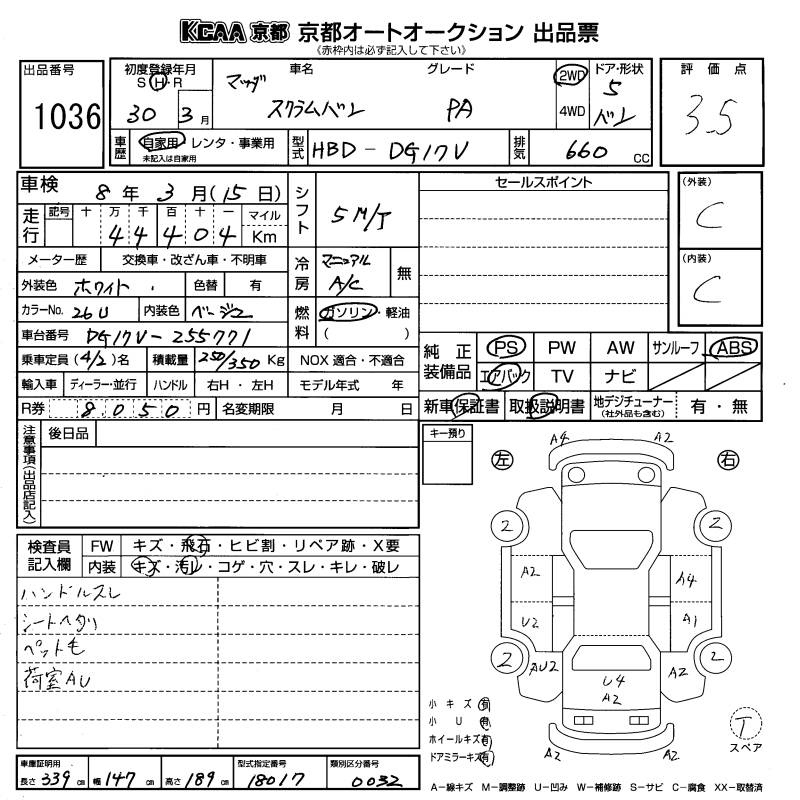 KCAA 京都 京都オートオークション 出品票
(赤枠内は必ず記入して下さい)
出品番号
1036
初度登録年月
S・H・R
30 3月
車名
グレード
マツダ
スクラムバン PA
2WD
4WD
ドア・形状
5
バン
評価点
3.5
車歴
自家用・レンタ・事業用
未記入は自家用
型式
HBD-DG17V
排気
660 CC
車検
8年3月(15日)
走行
記号 十 万 千 百 十 一 マイル
44404 Km
シフト
5M/T
メーター歴 交換車・改ざん車・不明車
冷房
マニュアル
A/C
無
外装色 ホワイト 色替 有
カラーNo. 26U 内装色 ベージュ
燃料
ガソリン・軽油
( )
車台番号 DG17V-255771
乗車定員 (4/2)名 積載量 250/350 Kg NOX 適合・不適合
輸入車 ディーラー・並行 ハンドル 右H・左H モデル年式 年
R券 8050円 名変期限 月 日
セールスポイント
(外装)
C
(内装)
C
純正装備品
PS PW AW サンルーフ ABS
エアバック TV ナビ
新車保証書 取扱説明書 地デジチューナー(社外品も含む) 有・無
注意事項(出品店記入)
後日品
キー預り
左 右
A4 A2
2 2
A2 A4
U2 A1
2 2
AU2 U4 A2
A2
A2 A2
検査員記入欄
FW キズ・飛石・ヒビ割・リペア跡・X要
内装 キズ・汚レ・コゲ・穴・スレ・キレ・破レ
ハンドルスレ
シートヘタリ
ペット毛
荷室AU
小キズ 有
小U 有
ホイールキズ 有
ドアミラーキズ 有
T
スペア
車庫証明用
長さ 339cm 幅 147cm 高さ 189cm
型式指定番号
18017
類別区分番号
0032
A-線キズ M-調整跡 U-凹み W-補修跡 S-サビ C-腐食 XX-取替済